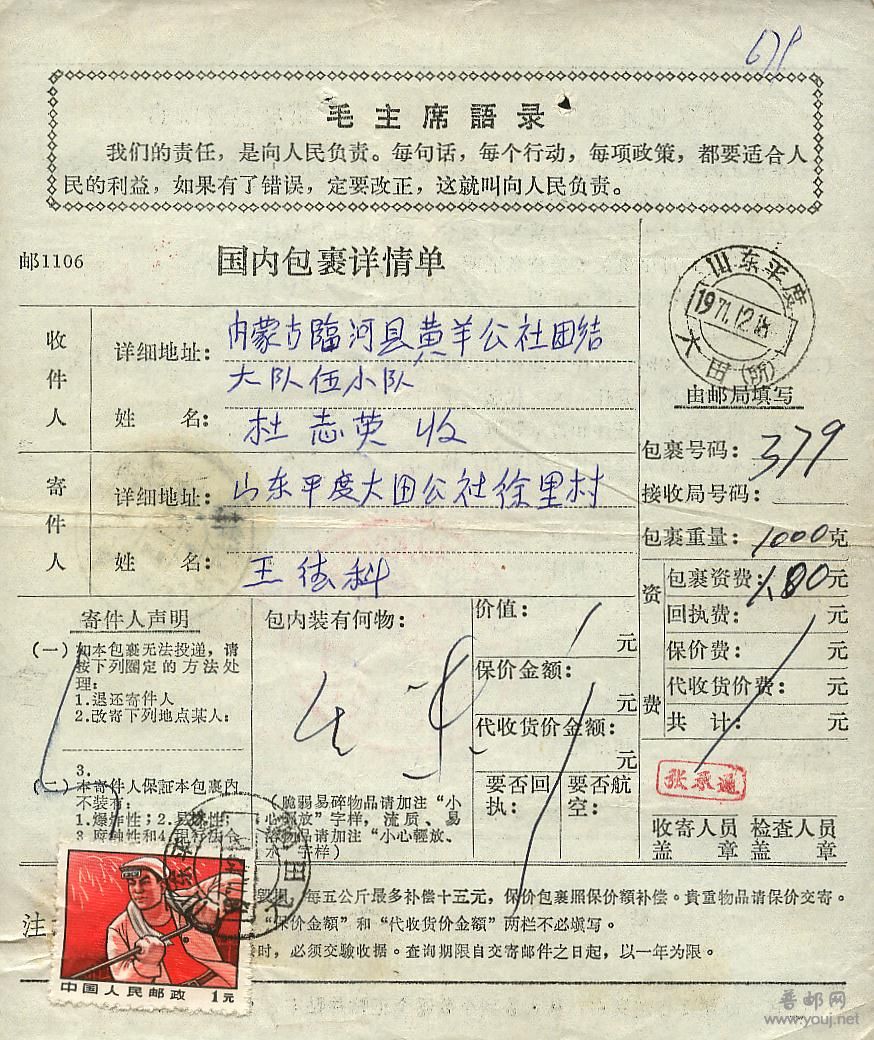 毛主席語录
我们的责任，是向人民负责。每句话，每个行动，每项政策，都要适合人
民的利益，如果有了错误，定要改正，这就叫向人民负责。
邮1106
国内包裹详情单
山东平度
1971.12.18
大田(所)
由邮局填写
收件人
详细地址：
内蒙古臨河县黄羊公社团结
大队伍小队
姓 名：
杜志英 收
寄件人
详细地址：
山东平度大田公社徐里村
姓 名：
王德科
包裹号码：379
接收局号码：
包裹重量：1000克
资费
包裹资费：1.80元
回执费： 元
保价费： 元
代收货价费： 元
共 计： 元
寄件人声明
(一)如本包裹无法投递，请
按下列圈定的方法处
理：
1.退还寄件人
2.改寄下列地点某人：
3.
(二)本寄件人保証本包裹内
不装有：
1.爆炸性；2.易燃性；
3.腐蚀性和4.
包内装有何物：
(脆弱易碎物品请加注“小
心輕放”字样，流质、易
物品请加注“小心輕放、
字样)
价值：
元
保价金额：
元
代收货价金额：
元
要否回执：
要否航空：
张承通
收寄人员盖章
检查人员盖章
注
每五公斤最多补偿十五元，保价包裹照保价额补偿。貴重物品请保价交寄。
“保价金額”和“代收货价金额”两栏不必填写。
时，必须交驗收据。查询期限自交寄邮件之日起，以一年为限。
中国人民邮政
1元
普邮网
www.youj.net